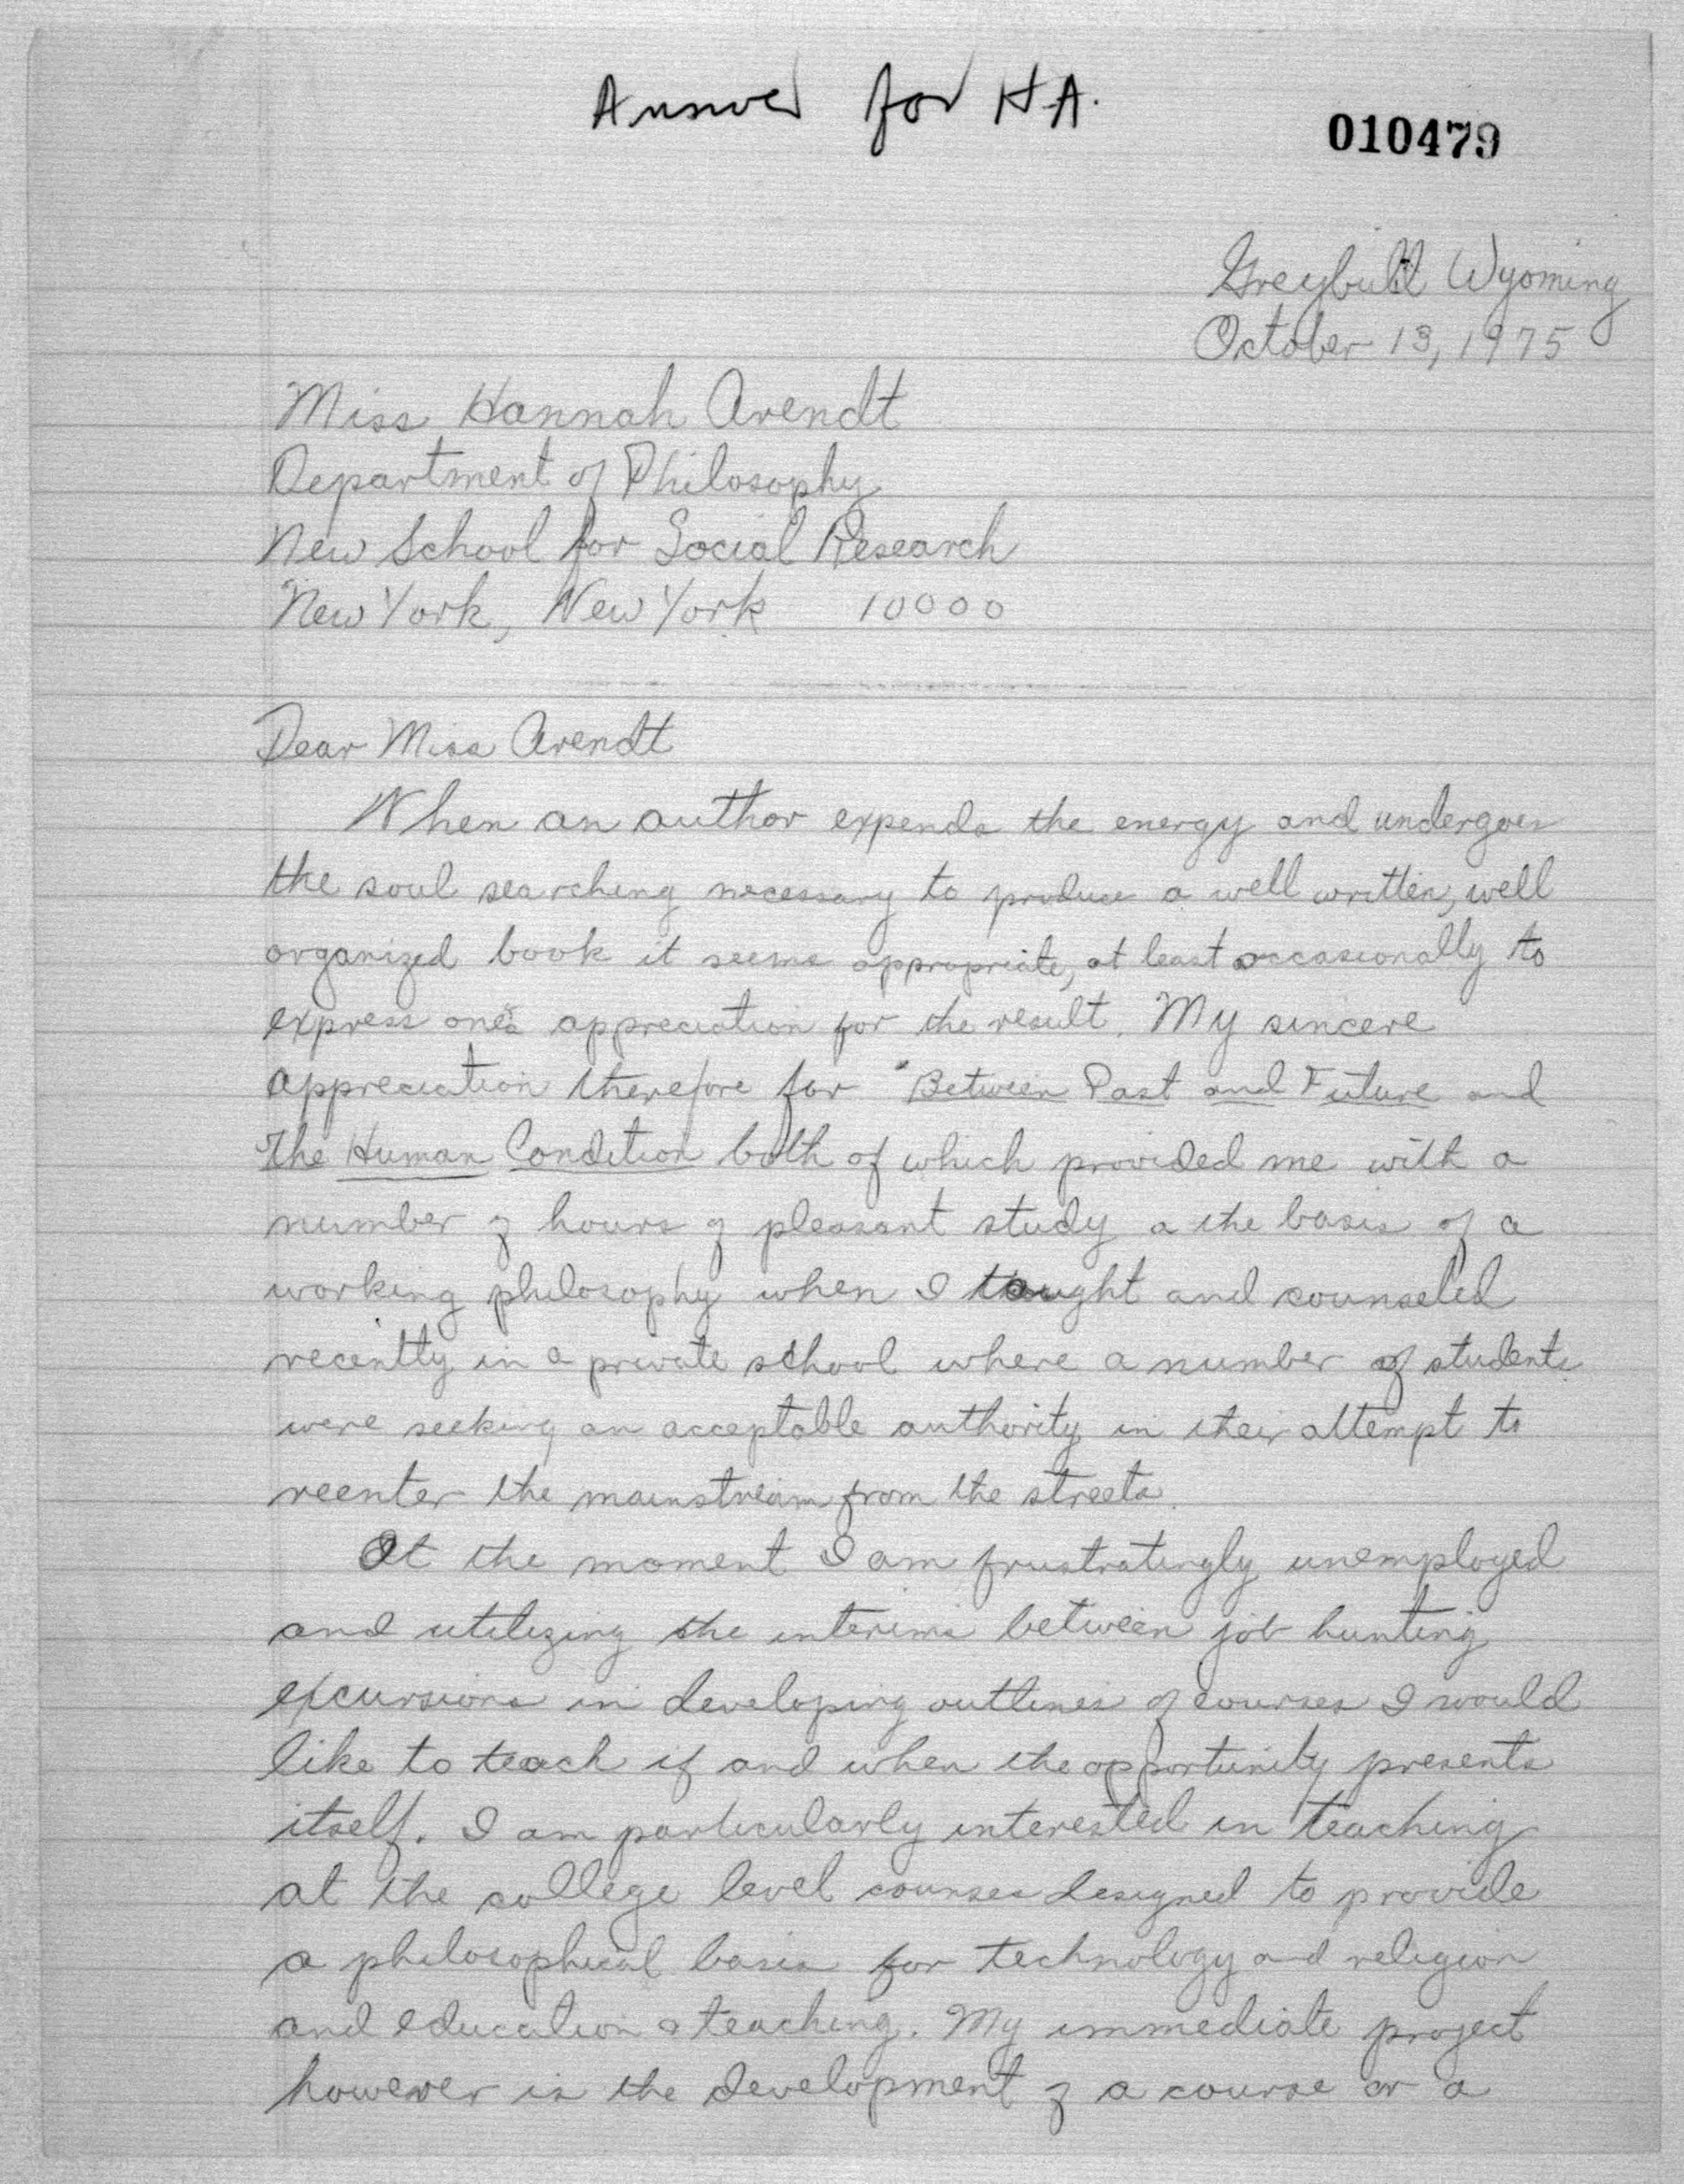 Answer for H.A.
010479
Greybull Wyoming
October 13, 1975
Miss Hannah Arendt
Department of Philosophy
New School for Social Research
New York, New York 10000
Dear Miss Arendt
When an author expends the energy and undergoes
the soul searching necessary to produce a well written, well
organized book it seems appropriate, at least occasionally to
express one's appreciation for the result. My sincere
appreciation therefore for "Between Past and Future and
The Human Condition both of which provided me with a
number of hours of pleasant study & the basis of a
working philosophy when I taught and counseled
recently in a private school where a number of students
were seeking an acceptable authority in their attempt to
reenter the mainstream from the streets.
At the moment I am frustratingly unemployed
and utilizing the interims between job hunting
excursions in developing outlines of courses I would
like to teach if and when the opportunity presents
itself. I am particularly interested in teaching
at the college level courses designed to provide
a philosophical basis for technology and religion
and education & teaching. My immediate project
however is the development of a course or a